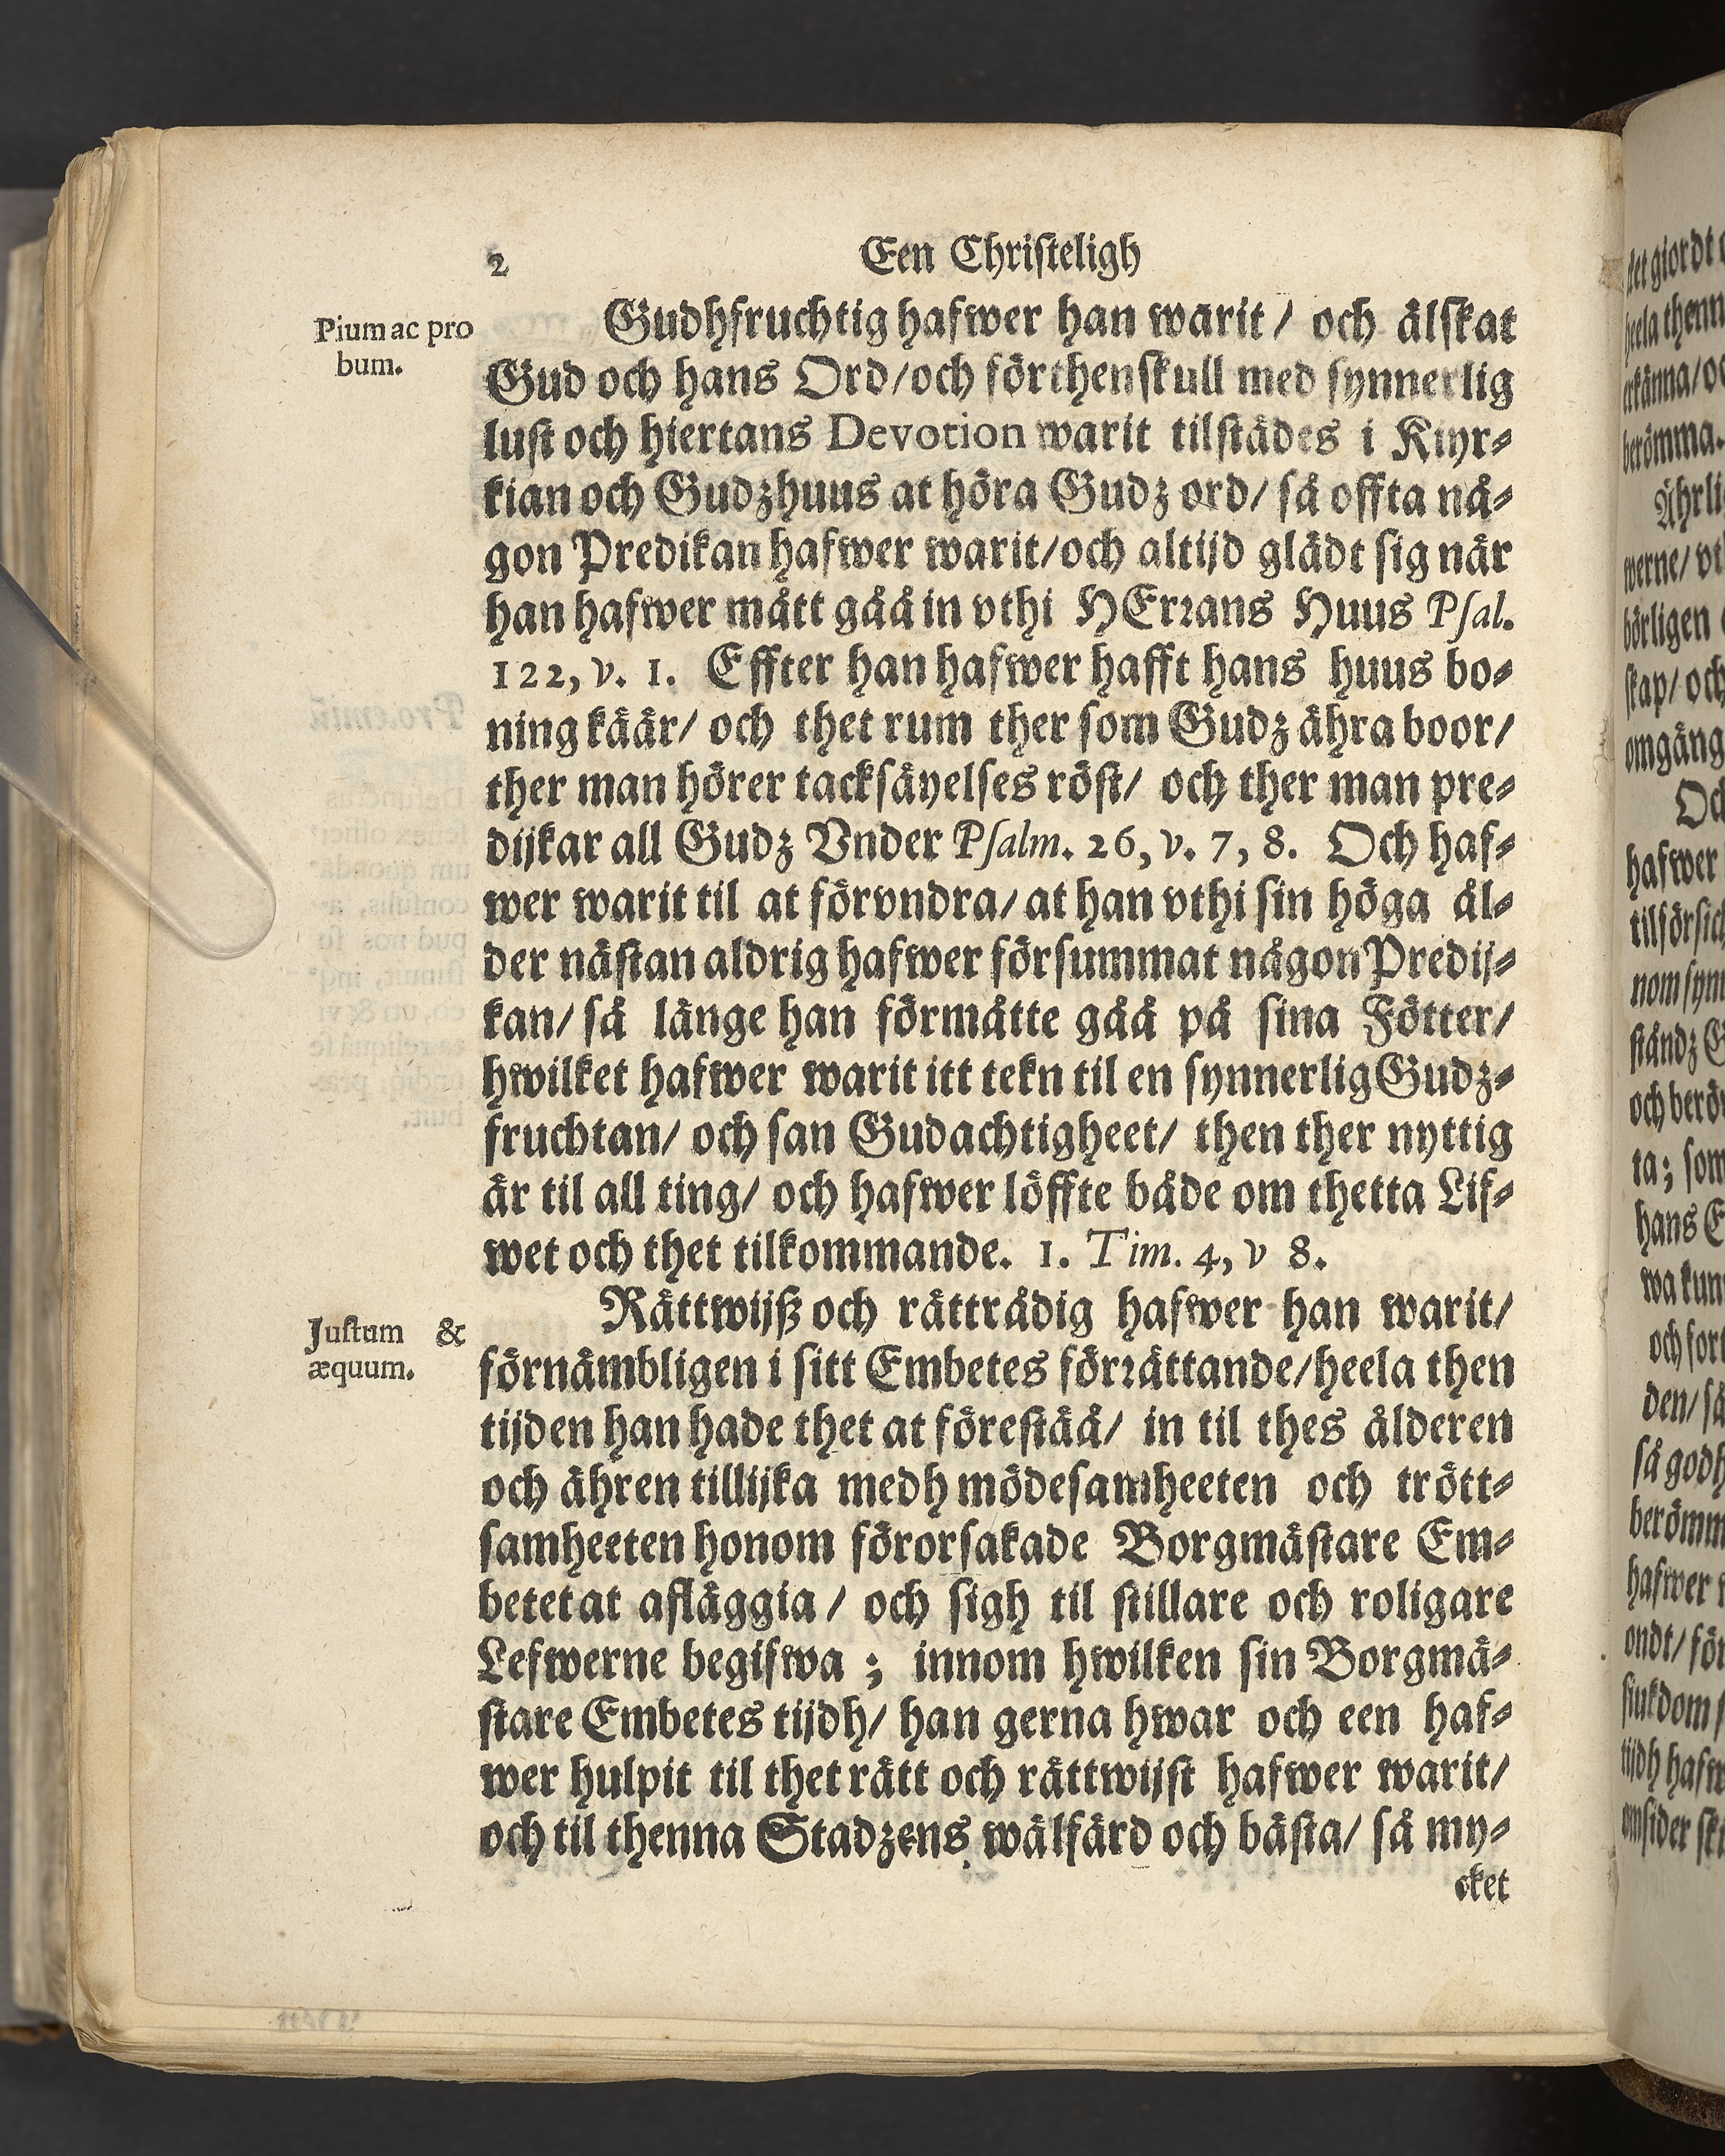 2
Een Christeligh
Pium ac pro
bum.
Gudhfruchtig hafwer han warit / och älskat
Gud och hans Ord/och förthenskull med synnerlig
lust och hiertans Devotion warit tilstädes i Kiyr-
kian och Gudzhuus at höra Gudz ord/ så offta nå-
gon Predikan hafwer warit/och altijd glädt sig när
han hafwer mått gåå in vthi HErrans Huus Psal.
122, v. 1. Effter han hafwer hafft hans huus bo-
ning käär/ och thet rum ther som Gudz ähra boor/
ther man hörer tacksäyelses röst/ och ther man pre-
dijkar all Gudz Vnder Psalm. 26, v. 7, 8. Och haf-
wer warit til at förvndra/ at han vthi sin höga ål-
der nästan aldrig hafwer försummat någon Predij-
kan/ så länge han förmåtte gåå på sina Fötter/
hwilket hafwer warit itt tekn til en synnerlig Gudz-
fruchtan/ och san Gudachtigheet/ then ther nyttig
är til all ting/ och hafwer löffte både om thetta Lif-
wet och thet tilkommande. 1. Tim. 4, v 8.
Justum &
æquum.
Rättwijß och rättrådig hafwer han warit/
förnämbligen i sitt Embetes förrättande/heela then
tijden han hade thet at föreståå/ in til thes ålderen
och ähren tillijka medh mödesamheeten och trött-
samheeten honom förorsakade Borgmästare Em-
betet at afläggia / och sigh til stillare och roligare
Lefwerne begifwa ; innom hwilken sin Borgmä-
stare Embetes tijdh/ han gerna hwar och een haf-
wer hulpit til thet rätt och rättwijst hafwer warit/
och til thenna Stadzens wälfärd och bästa/ så my-
cket